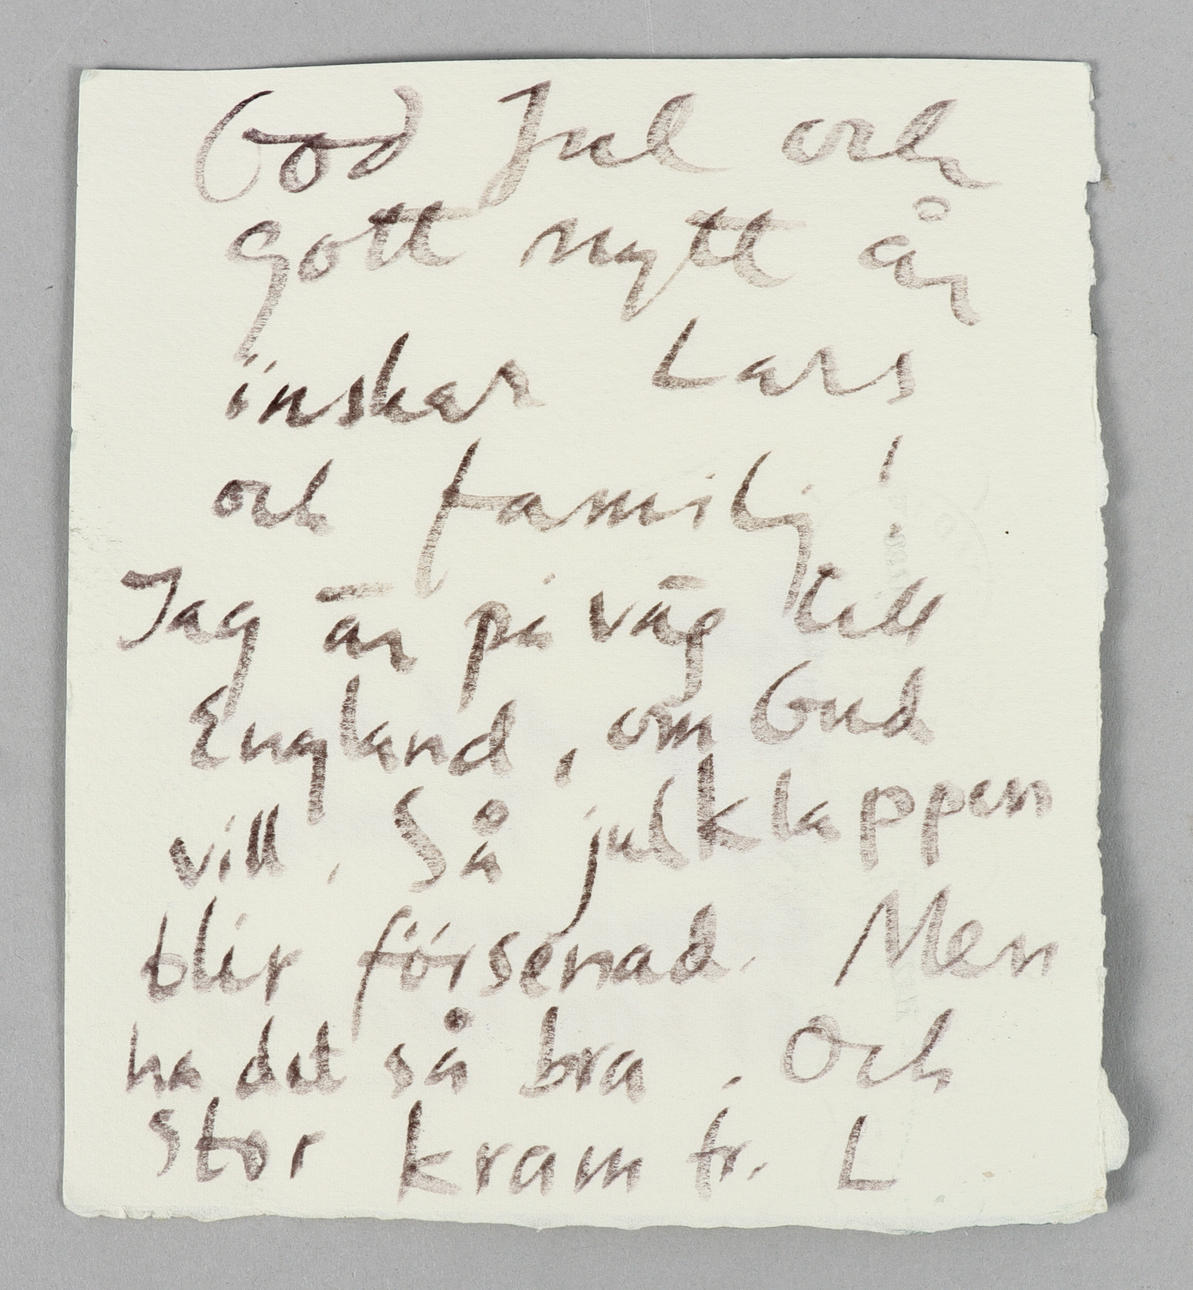 God Jul och
gott nytt år
önskar Lars
och familj!
Jag är på väg till
England, om Gud
vill. Så julklappen
blir försenad. Men
ha det så bra. Och
Stor kram fr. L